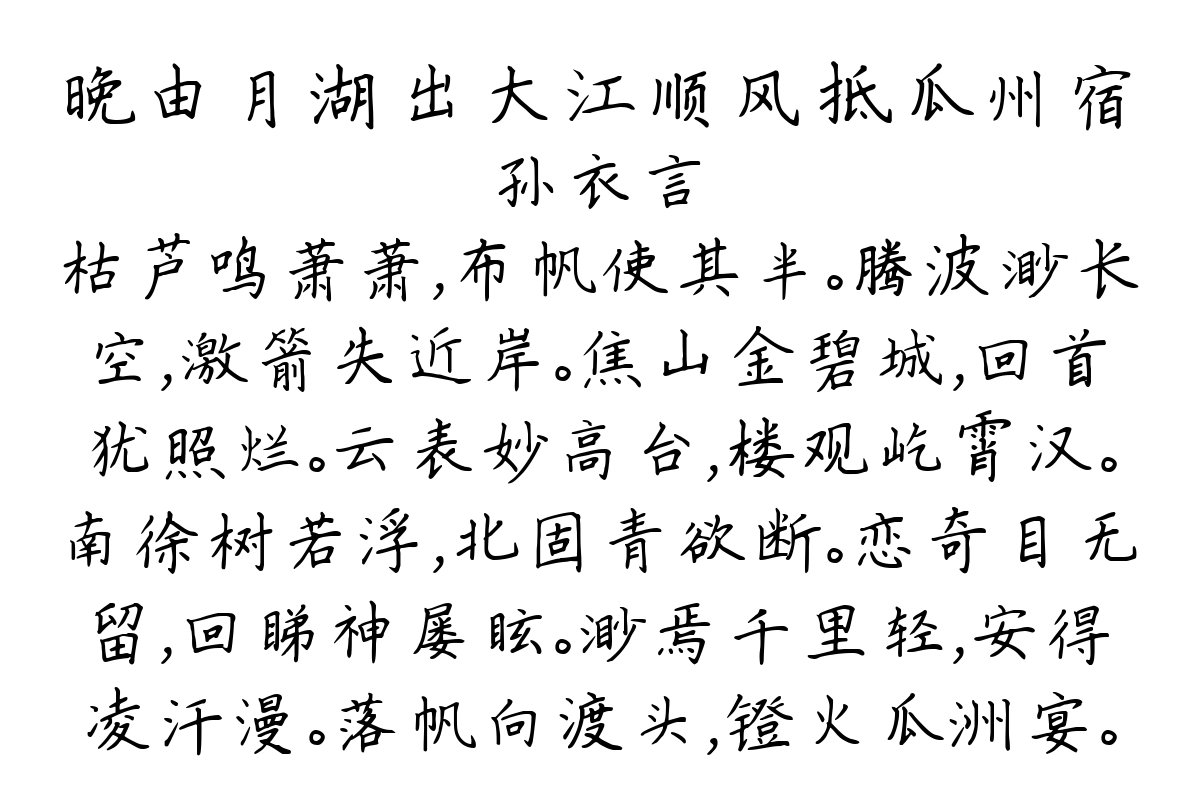 晚由月湖出大江顺风抵瓜州宿
孙衣言
枯芦鸣萧萧,布帆使其半。腾波渺长
空,激箭失近岸。焦山金碧城,回首
犹照烂。云表妙高台,楼观屹霄汉。
南徐树若浮,北固青欲断。恋奇目无
留,回睇神屡眩。渺焉千里轻,安得
凌汗漫。落帆向渡头,镫火瓜洲宴。